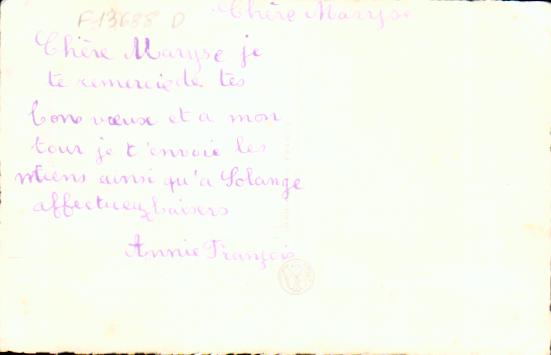 F-13688 D
Chère Maryse
Chère Maryse je
te remercie de tes
bons vœux et a mon
tour je t'envoie les
miens ainsi qu'a Solange
affectueux baisers
Annie François